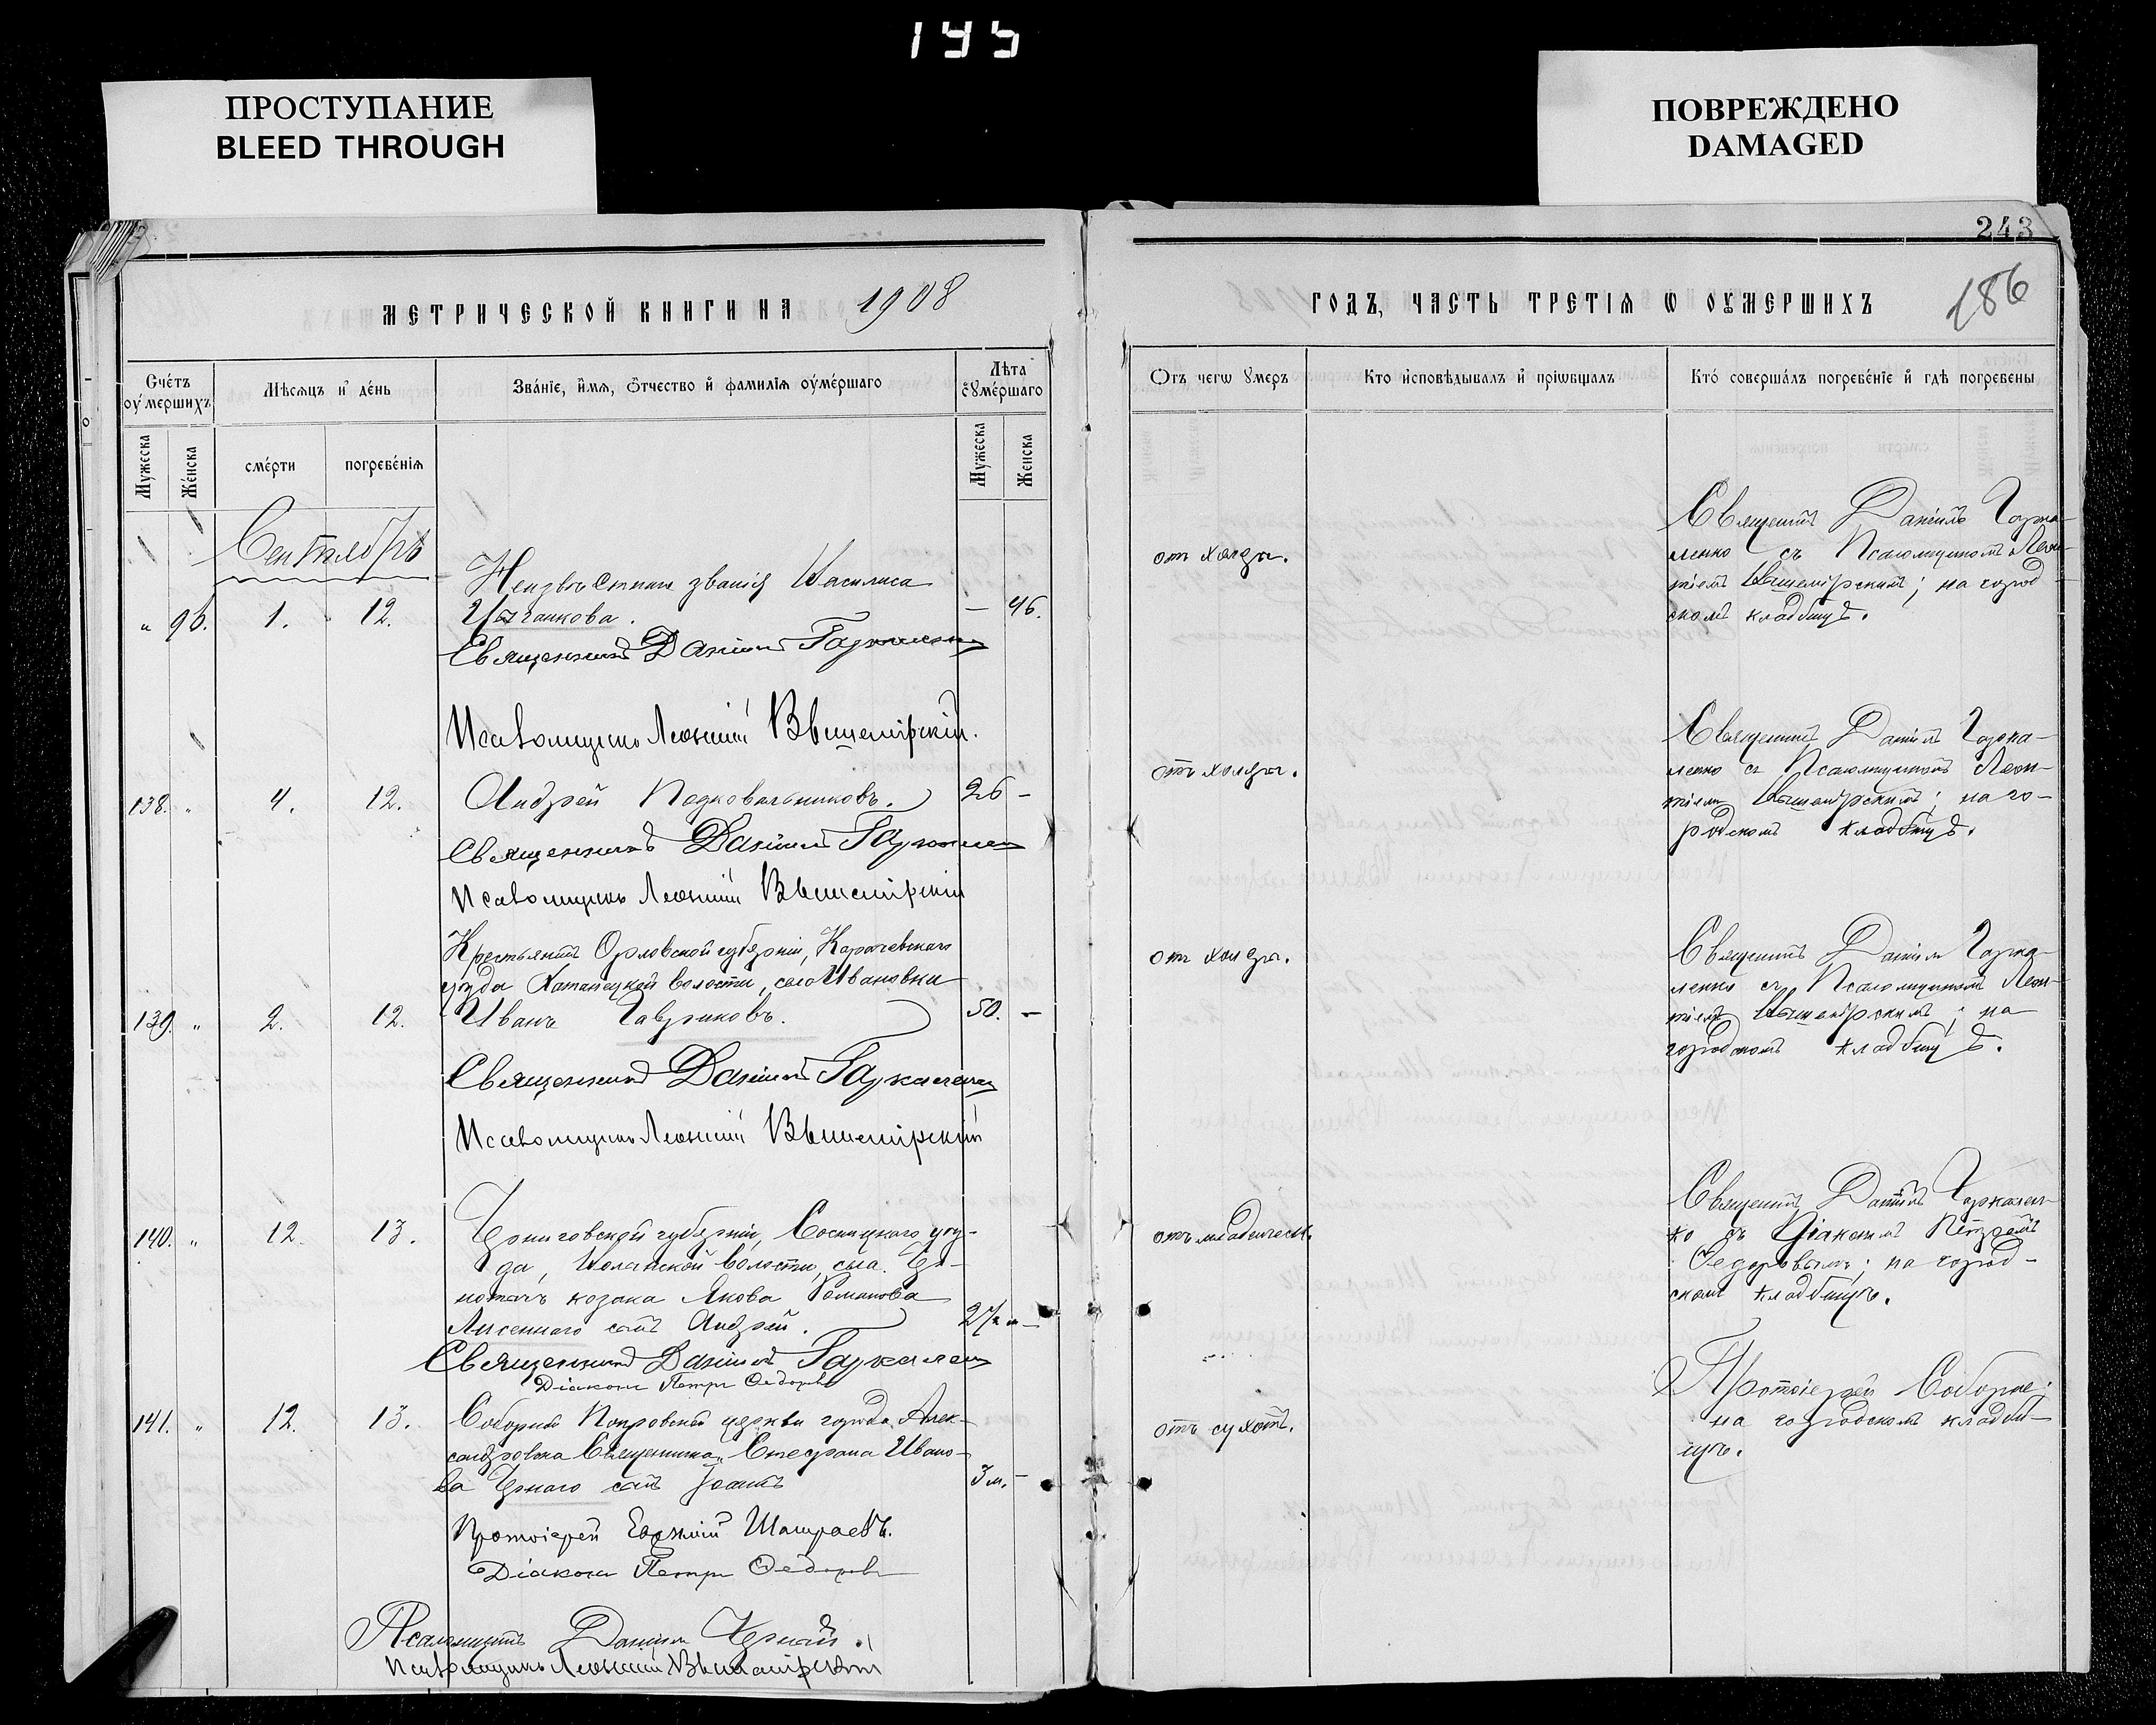 195
ПРОСТУПАНИЕ
BLEED THROUGH
ПОВРЕЖДЕНО
DAMAGED
243
186
МЕТРИЧЕСКОЙ КНИГИ НА 1908
ГОДЪ, ЧАСТЬ ТРЕТІѦ Ѡ ОУМЕРШИХЪ
Сче́тъ оу́мершихъ
Мѣсѧцъ и҆ де́нь
Зва́нїе, и҆́мѧ, ѻ҆́тчество и҆ фамилїѧ оу҆ме́ршаго
Лѣта оу҆ме́ршаго
Ѿъ чегѡ оумеръ
Кто и҆сповѣдывалъ и҆ прїѡбщалъ
Кто́ соверша́лъ погребе́нїе и҆ гдѣ погребены
Мужеска
Же́нска
сме́рти
погребе́нїѧ
Мужеска
Женска
Сентябрь
Неизвѣстнаго званія Василиса
„ 96. 1. 12.
— 46.
Священникъ Даніилъ Гаркаленко
Псаломщикъ Леонтій Вышемірскій.
отъ холеры.
Священникъ Даніилъ Гарка-
ленко съ Псаломщикомъ Леон-
тіемъ Вышемірскимъ; на город-
скомъ кладбищѣ.
138. „ 4. 12. Андрей Подковальниковъ. 26 —
Священникъ Даніилъ Гаркаленко
Псаломщикъ Леонтій Вышемірскій
отъ холеры.
Священникъ Даніилъ Гарка-
ленко съ Псаломщикомъ Леон-
тіемъ Вышемірскимъ; на го-
родскомъ кладбищѣ.
Крестьянинъ Орловской губерніи, Карачевскаго
уѣзда волости, села Ивановки
139. „ 2. 12. Иванъ Гавриковъ. 50. —
Священникъ Даніилъ Гаркаленко
Псаломщикъ Леонтій Вышемірскій
отъ холеры.
Священникъ Даніилъ Гарка-
ленко съ Псаломщикомъ Леон-
тіемъ Вышемірскимъ; на
городскомъ кладбищѣ.
140. „ 12. 13. Черниговской губерніи, Сосницкаго уѣз-
да, волости, села
козака Якова Романова
сынъ Андрей.
Священникъ Даніилъ Гаркаленко
Діаконъ Петръ Ѳедоровъ
отъ младенческ.
Священникъ Даніилъ Гаркален-
ко съ Діакономъ Петромъ
Ѳедоровымъ; на город-
скомъ кладбищѣ.
141. „ 12. 13. Соборной Покровской церкви города Алек-
сандровска Священника Стефана Ивано-
ва Чернаго сынъ Іоаннъ 3 м. —
Протоіерей Евгеній
Діаконъ Петръ Ѳедоровъ
отъ сухотъ.
Протоіерей Соборне;
на городскомъ кладби-
щѣ.
Псаломщикъ Даніилъ Черный.
Псаломщикъ Леонтій Вышемірскій